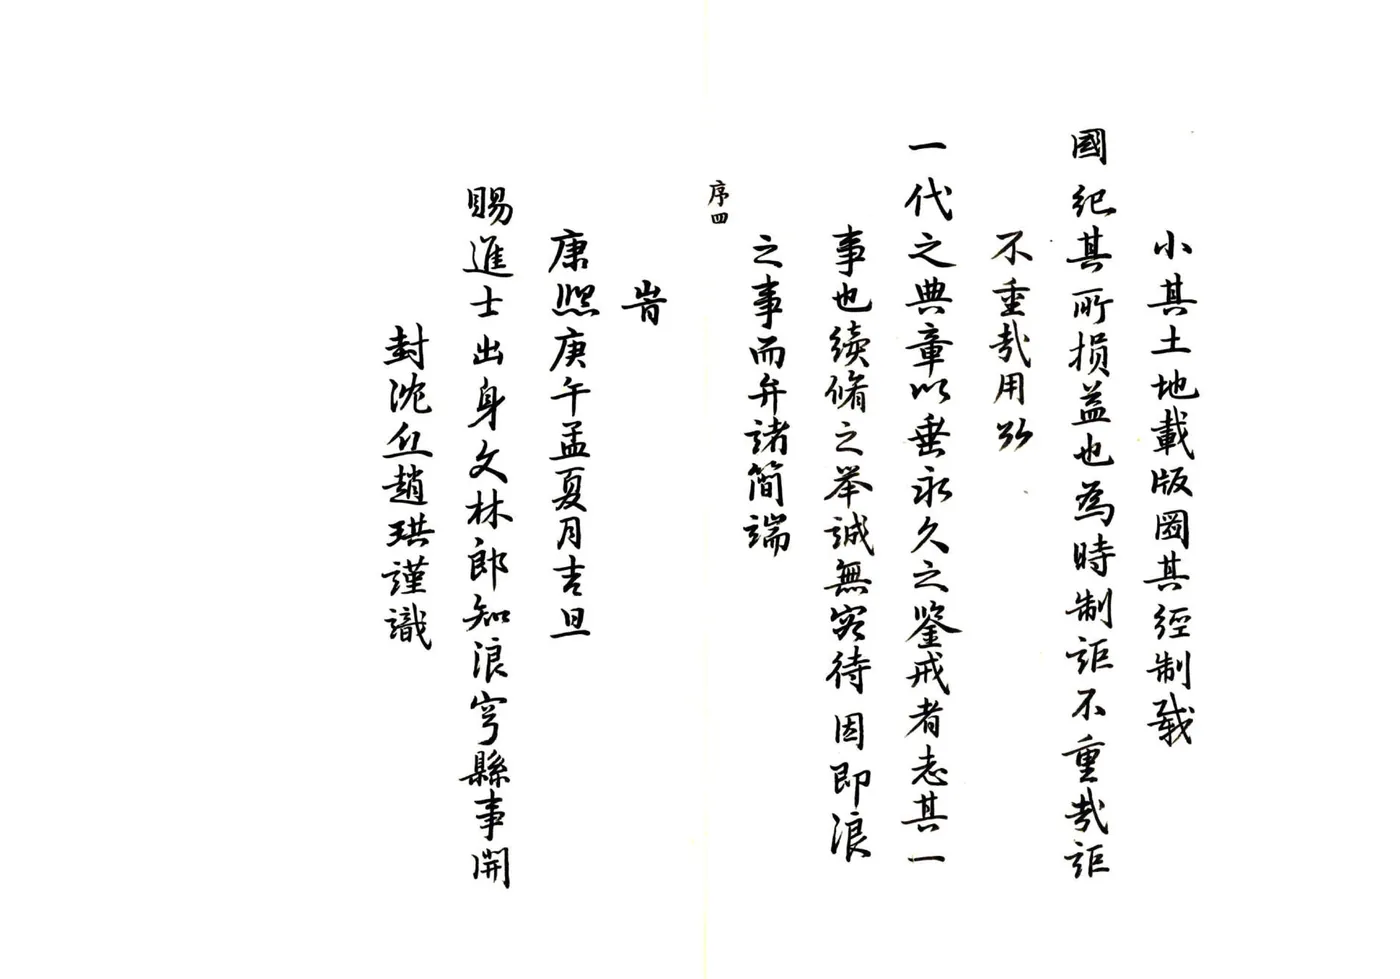 小其土地載版圖其經制載
國紀其所損益也為時制詎不重哉詎
不重哉用以
一代之典章以垂永久之鑒戒者志其一
事也續脩之举誠無容待因即浪
之事而弁諸簡端
序四
旹
康熈庚午孟夏月吉旦
賜進士出身文林郎知浪穹縣事開
封沈丘趙珙謹識